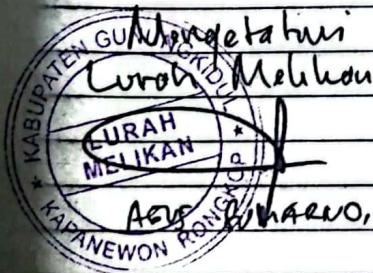 Mengetahui
Lurah Melikan
KABUPATEN GUNUNGKIDUL
LURAH
MELIKAN
KAPANEWON RONGKOP
AGUS SUMARNO,